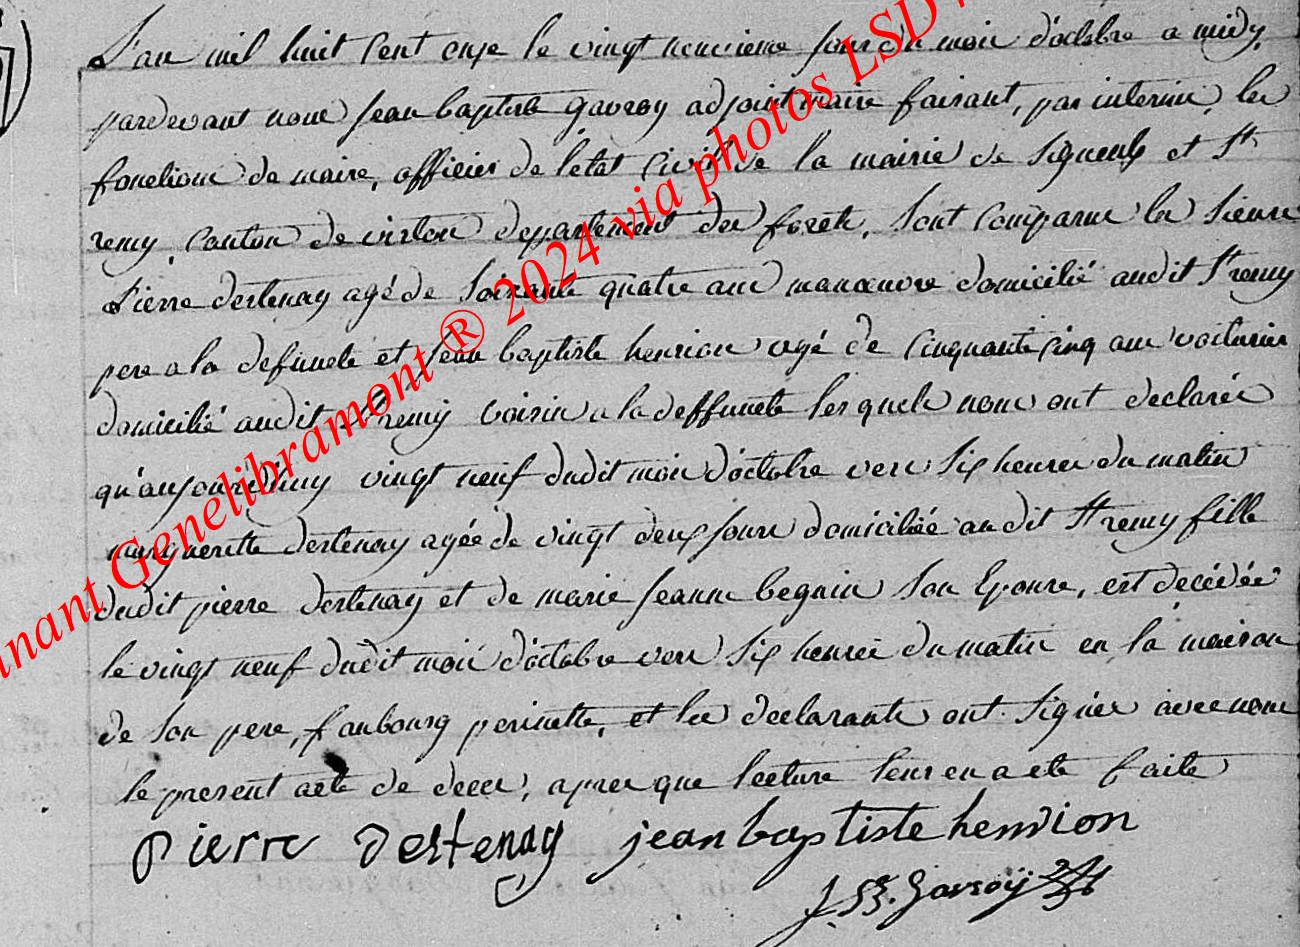 L'an mil huit cent onze le vingt neuvieme jour du mois d'octobre a midy,
pardevant nous jean baptiste gavroy adjoint maire faisant, par interim, les
fonctions de maire, officier de l'etat civil de la mairie de signeulx et St
remy, canton de virton departement des forets, sont comparus les sieurs
Pierre destenay agé de soixante quatre ans manoeuvre domicilié audit St remy
pere a la defuncte et jean baptiste henrion agé de cinquante cinq ans voiturier
domicilié audit St remy voisin a la deffuncte lesquels nous ont declarés
qu'aujourd'huy vingt neuf dudit mois d'octobre vers six heures du matin
margueritte destenay agée de vingt deux jours domiciliée audit St remy fille
dudit pierre destenay et de marie jeanne begnin son Epouse, est decédée
le vingt neuf dudit mois d'octobre vers six heures du matin en la maison
de son pere, faubourg perinette, et les declarants ont signés avec nous
le present acte de deces, apres que lecture leur en a ete faite
pierre destenay jean baptiste hendion
J Bt. Gavroÿ
nant Genelibramont ® 2024 via photos LSD